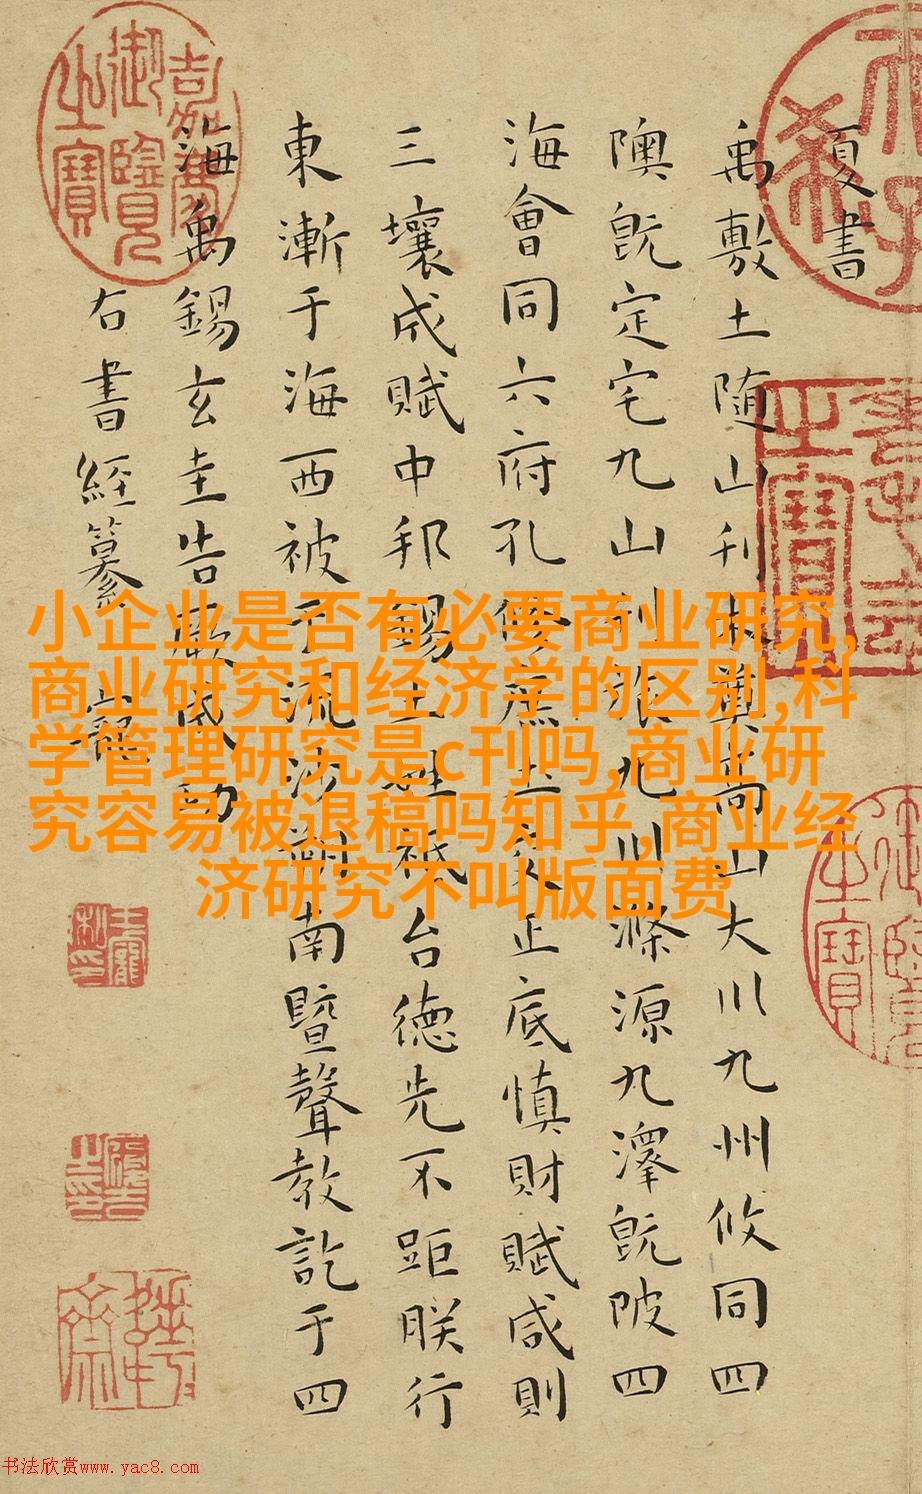 夏書
禹敷土随山刊木奠高山大川九州攸同四
隩既定宅九山刊旅九川滌源九澤既陂四
海會同六府孔修庶土交正底慎財賦咸則
三壤成賦中邦錫土姓祗台德先不距朕行
東漸于海西被于流沙朔南暨聲教訖于四
海禹錫玄圭告厥成功
右書經纂 寵
嘉慶御覽之寶
小企业是否有必要商业研究,
商业研究和经济学的区别,科
学管理研究是c刊吗,商业研
究容易被退稿吗知乎,商业经
济研究不叫版面费
书法欣赏www.yac8.com